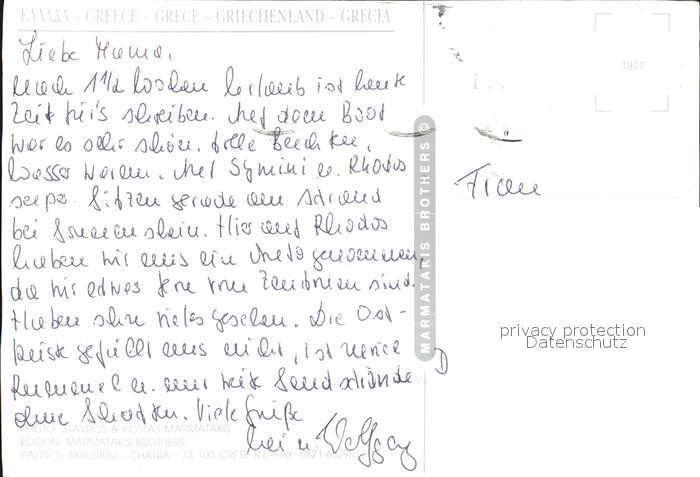 ΕΛΛΑΔΑ - GREECE - GRECE - GRIECHENLAND - GRECIA
Liebe Mama,
nach 1 1/2 Wochen Urlaub ist heute
Zeit für's schreiben. Auf dem Boot
war es sehr schön, tolle Buchten,
Wasser warm. Auf Symini u. Rhodos
super. Sitzen gerade am Strand
bei Sonnenschein. Hier auf Rhodos
haben wir uns ein Auto genommen,
da wir etwas fern vom Zentrum sind.
Haben schon vieles gesehen. Die Ost-
küste gefällt uns nicht, ist
u. nur Sandstrände
ohne Schatten. Viele Grüße
u. Wolfgang
PHOTO: STAVROS & KOSTAS MARMATAKIS
EDITION: MARMATAKIS BROTHERS
PAZINOS AKROTIRIU - CHANIA - 73 100 CRETE TEL-FAX 0821-66290
MARMATAKIS BROTHERS ©
D
1907
Frau
privacy protection
Datenschutz